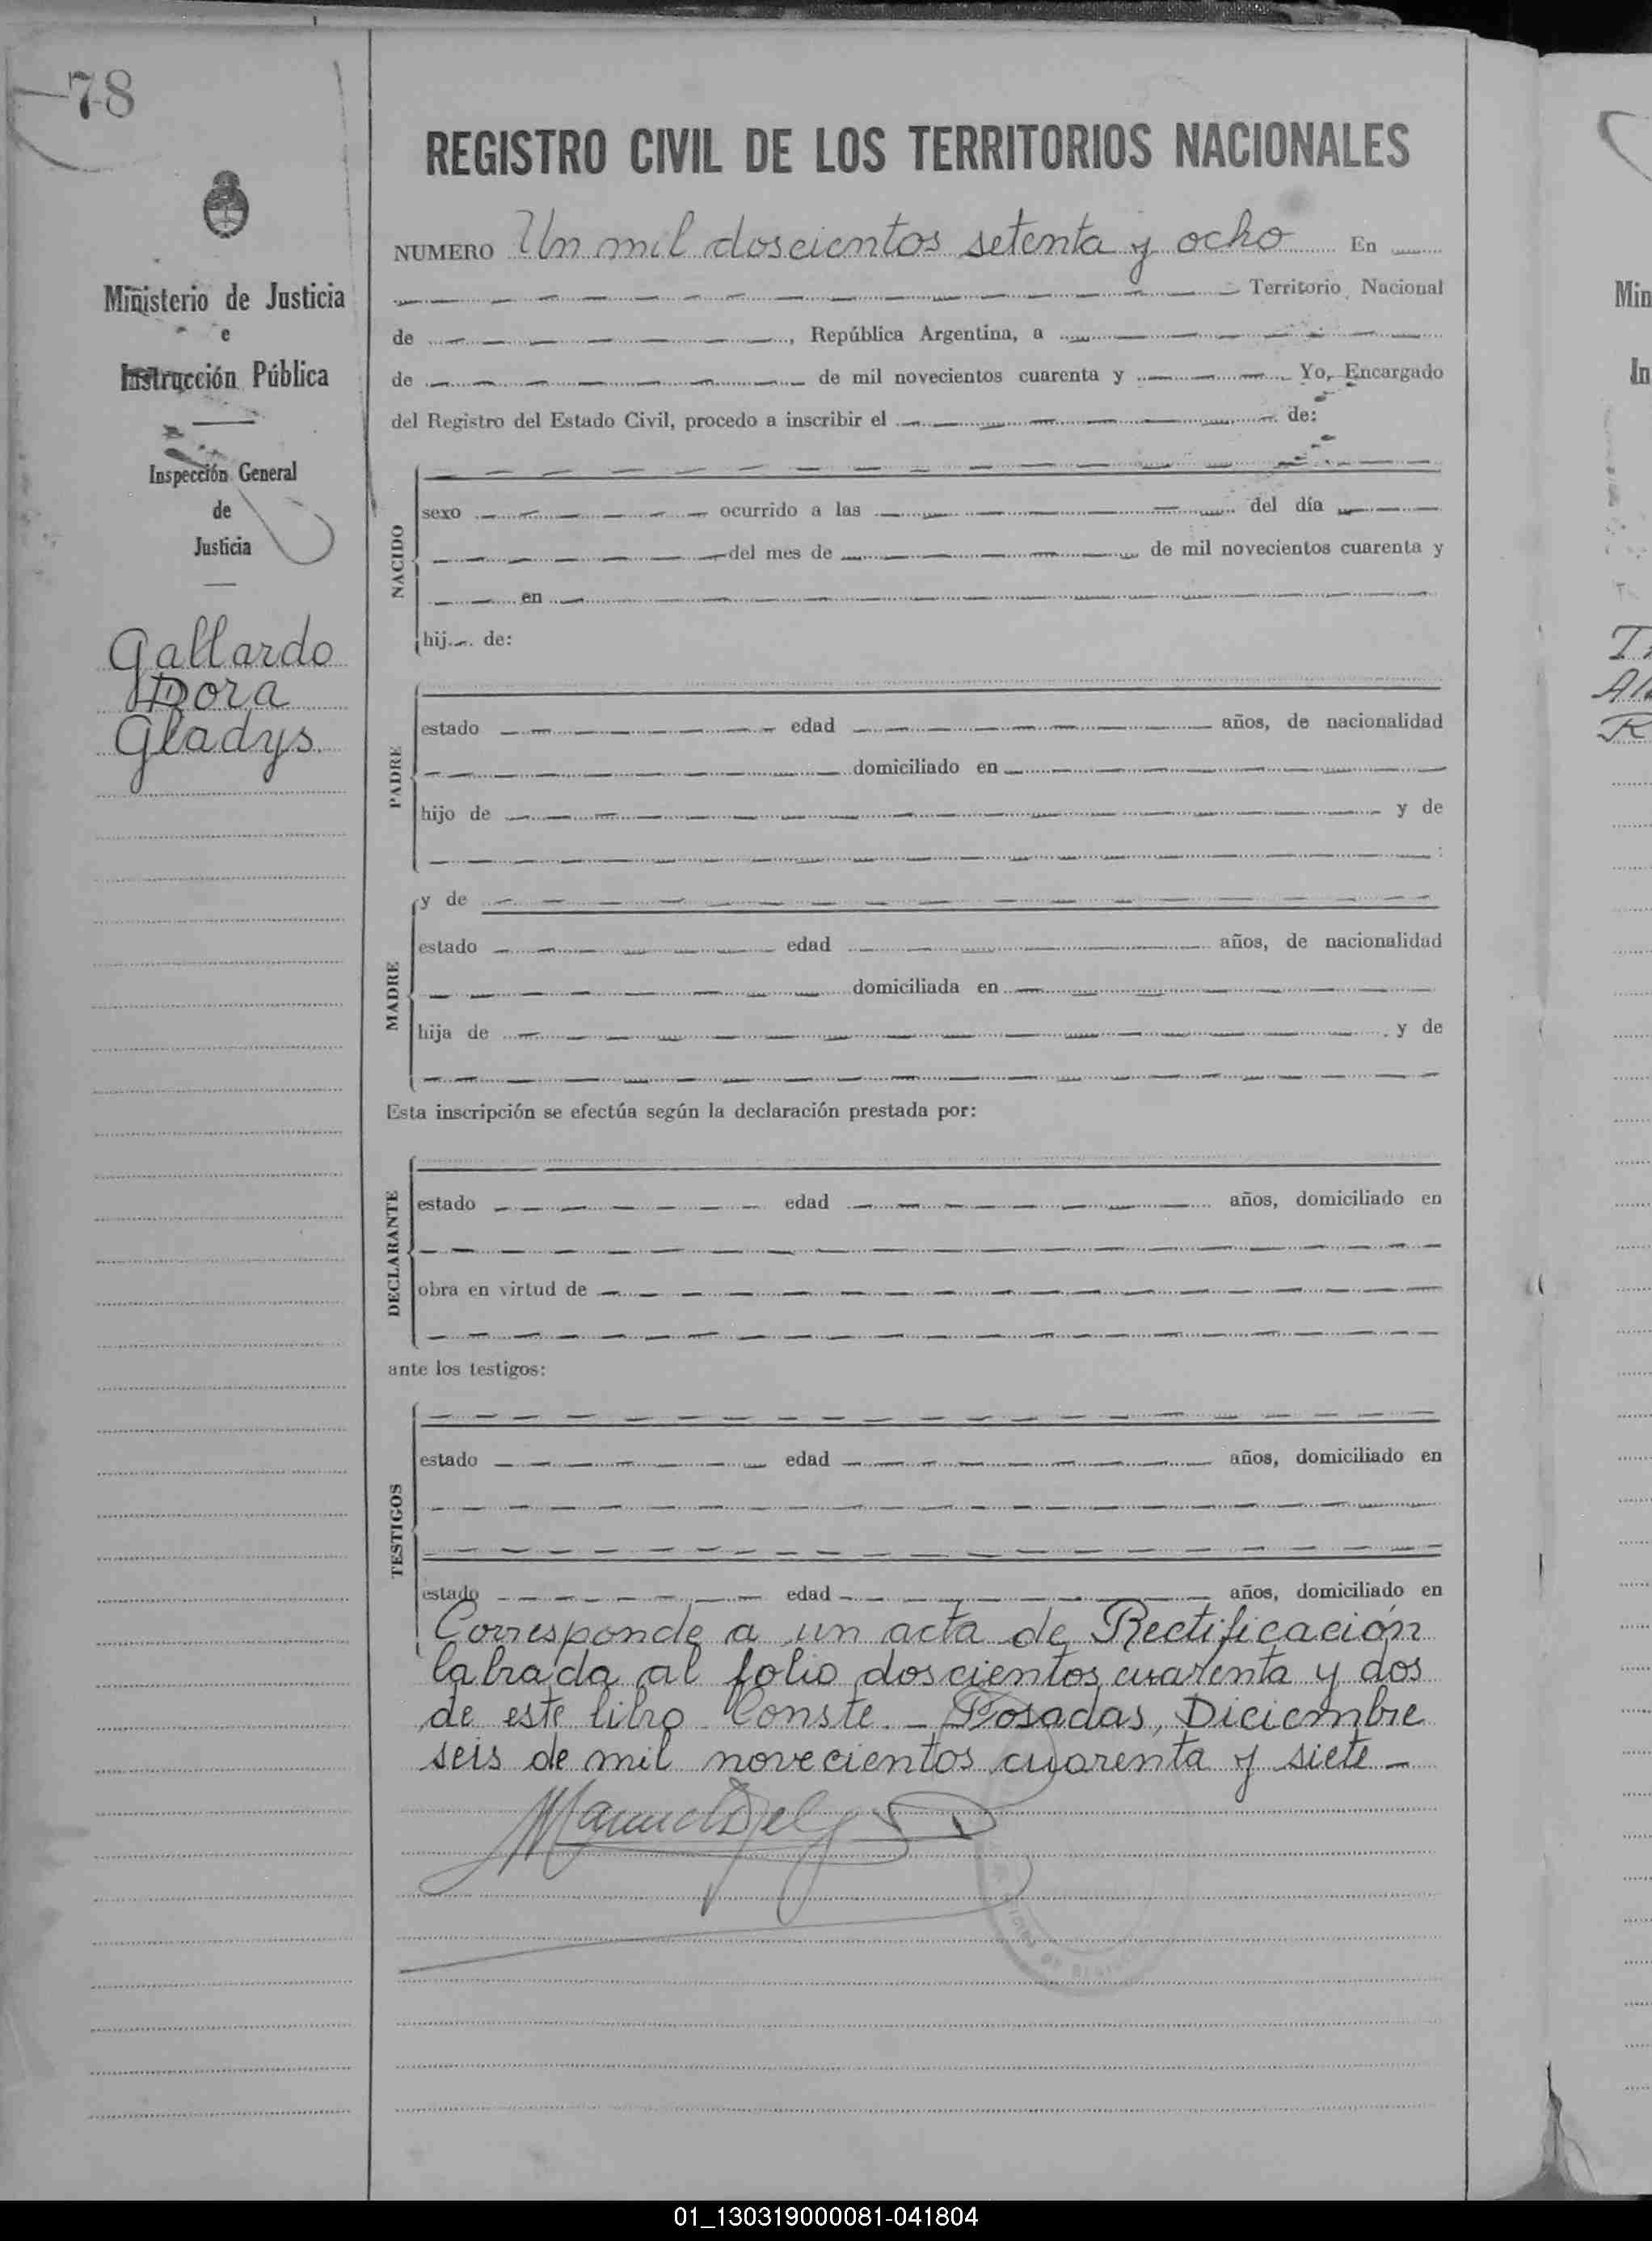 78
Ministerio de Justicia
e
Instrucción Pública
Inspección General
de
Justicia
Gallardo
Dora
Gladys
REGISTRO CIVIL DE LOS TERRITORIOS NACIONALES
NUMERO Un mil doscientos setenta y ocho En
Territorio Nacional
de , República Argentina, a
de de mil novecientos cuarenta y Yo, Encargado
del Registro del Estado Civil, procedo a inscribir el de:
NACIDO
sexo ocurrido a las del día
del mes de de mil novecientos cuarenta y
en
hij de:
PADRE
estado edad años, de nacionalidad
domiciliado en
hijo de y de
MADRE
y de
estado edad años, de nacionalidad
domiciliada en
hija de y de
Esta inscripción se efectúa según la declaración prestada por:
DECLARANTE
estado edad años, domiciliado en
obra en virtud de
ante los testigos:
TESTIGOS
estado edad años, domiciliado en
estado edad años, domiciliado en
Corresponde a un acta de Rectificación
labrada al folio doscientos cuarenta y dos
de este libro. Conste. - Posadas, Diciembre
seis de mil novecientos cuarenta y siete -
Min
In
01_130319000081-041804